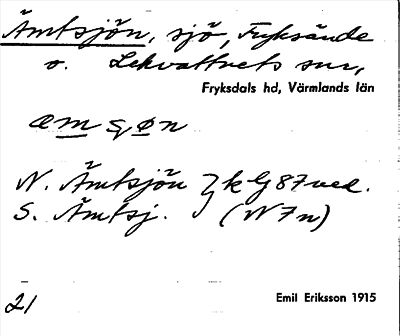 Ämtsjön, sjö, Fryksände
o. Lekvattnets snr,
Fryksdals hd, Värmlands län
æmʂøn
N. Ämtsjön } k G 87 ved.
S. Ämtsj. (N 7 n)
21
Emil Eriksson 1915